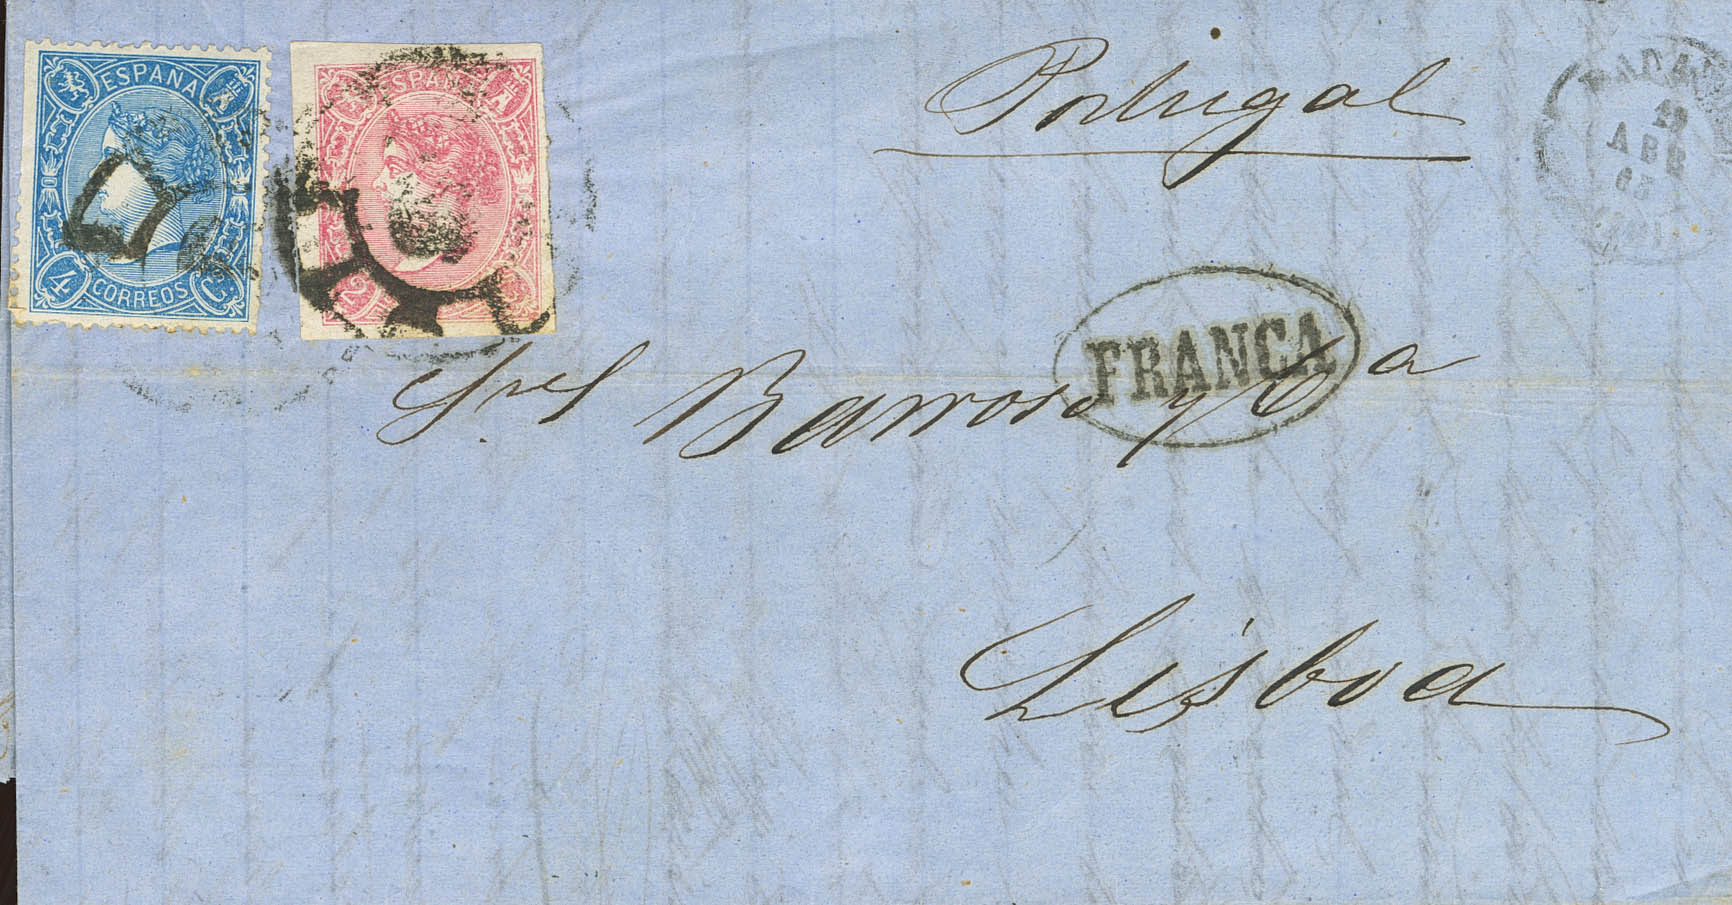 ESPAÑA
4 Cs
CORREOS
ESPAÑA
12
Portugal
29
ABR
65
FRANCA
Sres Barroso y Ca
Lisboa